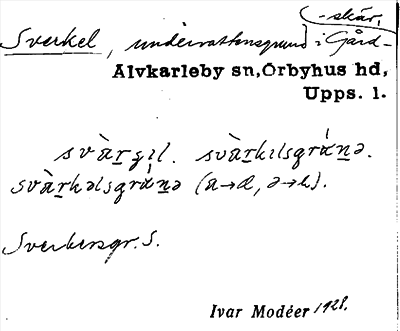 -skär,
Sverkel, undervattensgrund i Gård-
Älvkarleby sn, Örbyhus hd,
Upps. l.
svàrgıl. svàrkılsgránə.
svàrkəlsgránə (a→a, ə→ı).
Sverkersgr. S.
Ivar Modéer 1928.